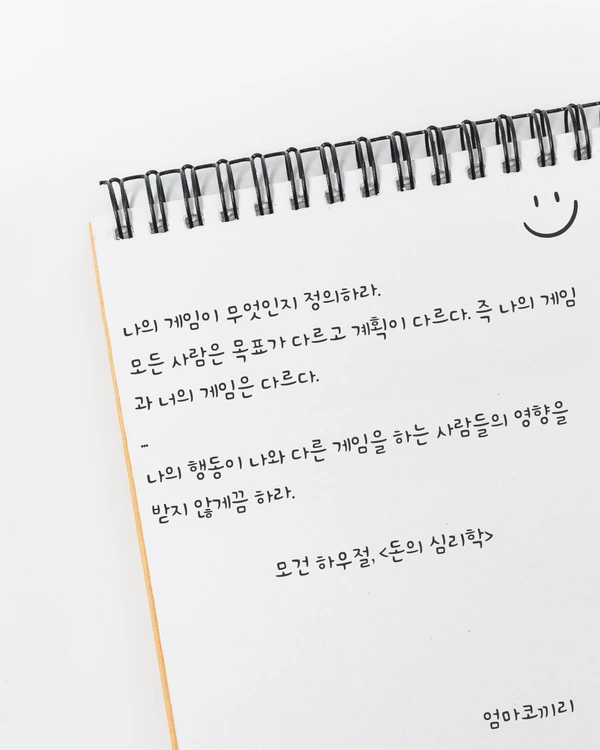 나의 게임이 무엇인지 정의하라.
모든 사람은 목표가 다르고 계획이 다르다. 즉 나의 게임
과 너의 게임은 다르다.
...
나의 행동이 나와 다른 게임을 하는 사람들의 영향을
받지 않게끔 하라.
모건 하우절, <돈의 심리학>
엄마코끼리